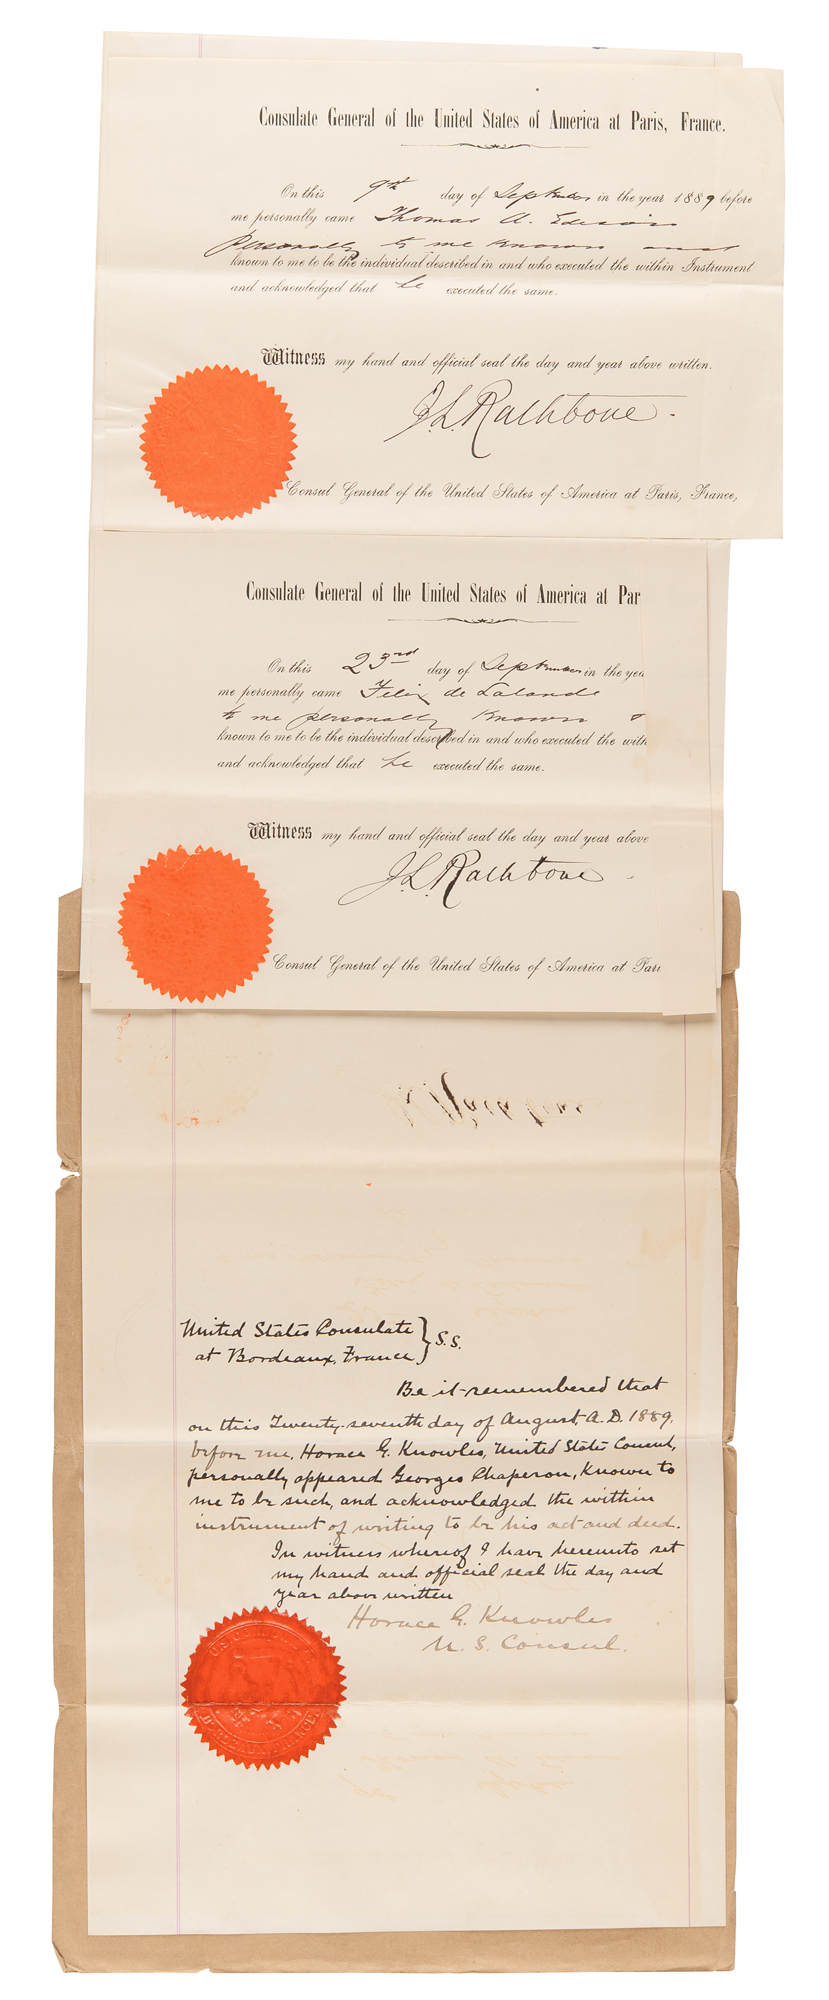 Consulate General of the United States of America at Paris, France.
On this 9th day of September in the year 1889 before
me personally came Thomas A. Edison
personally to me known and
known to me to be the individual described in and who executed the within Instrument
and acknowledged that he executed the same.
Witness my hand and official seal the day and year above written.
J. L. Rathbone
Consul General of the United States of America at Paris, France,
Consulate General of the United States of America at Par
On this 23rd day of September in the yea
me personally came Felix de Lalande
to me personally known
known to me to be the individual described in and who executed the with
and acknowledged that he executed the same.
Witness my hand and official seal the day and year above
J. L. Rathbone
Consul General of the United States of America at Pari
United States Consulate } S.S.
at Bordeaux, France
Be it remembered that
on this Twenty-seventh day of August, A.D. 1889,
before me, Horace G. Knowles, United States Consul,
personally appeared Georges Chaperon, known to
me to be such, and acknowledged the within
instrument of writing to be his act and deed.
In witness whereof I have hereunto set
my hand and official seal the day and
year above written
Horace G. Knowles
U. S. Consul.